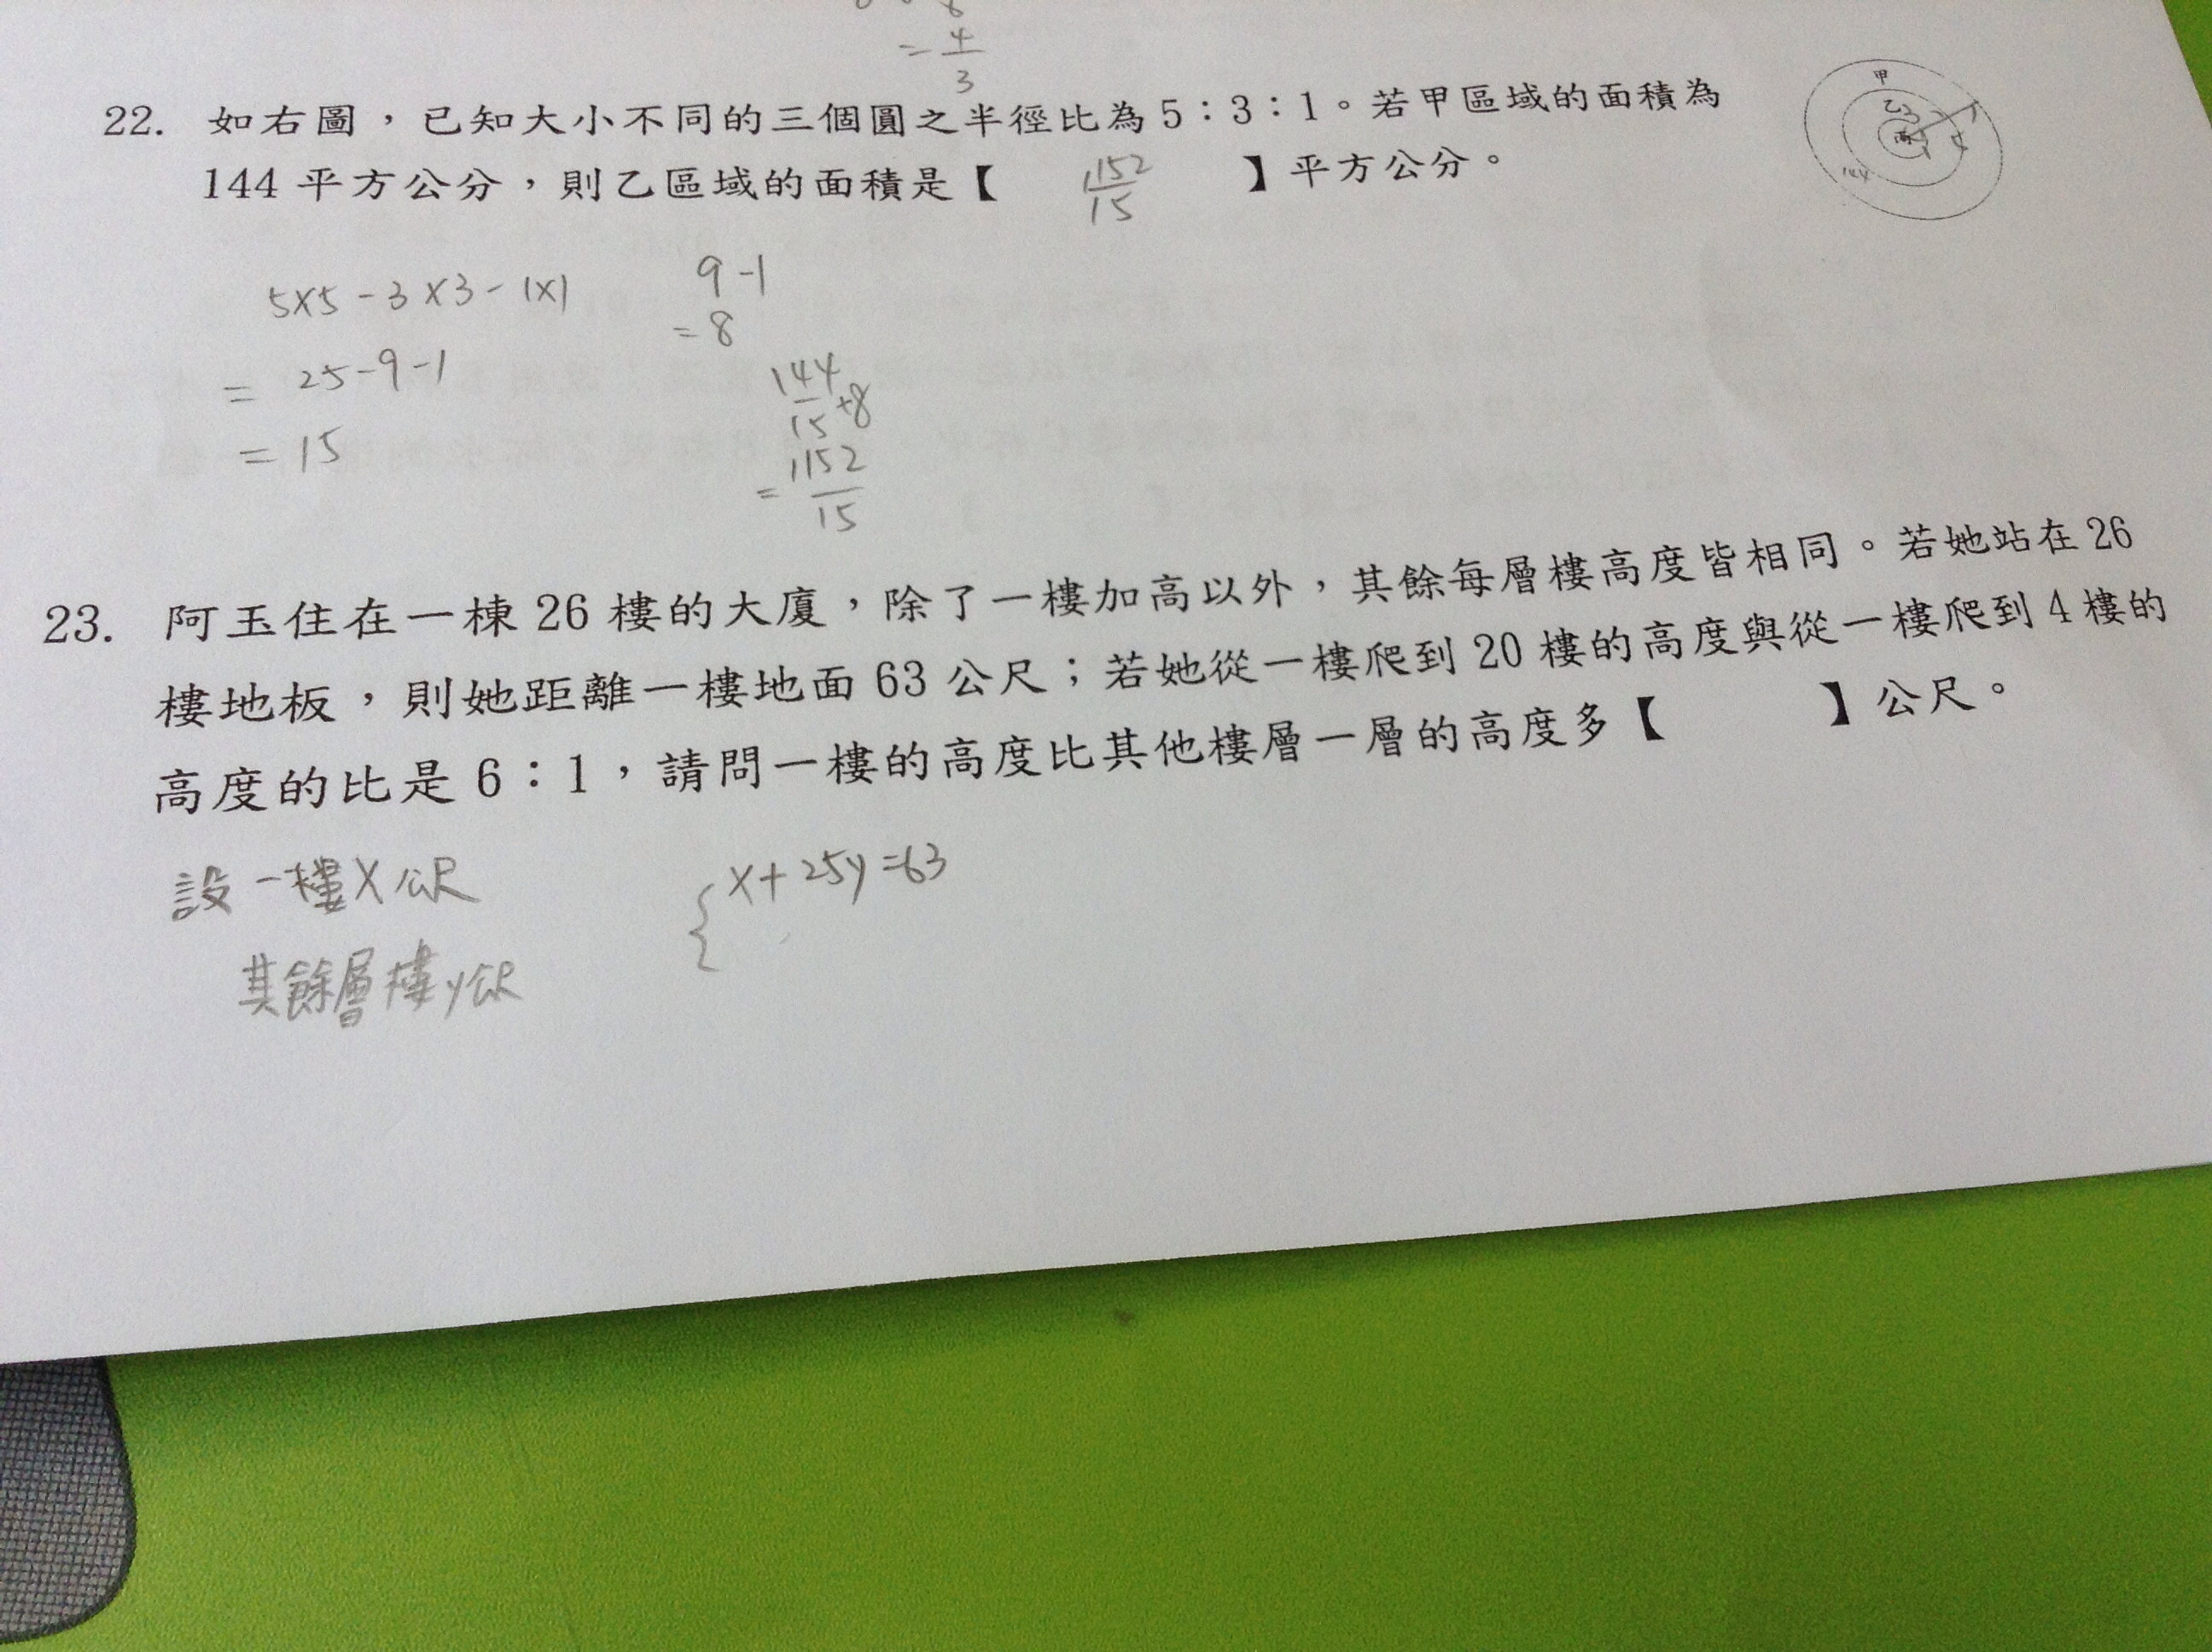 = 4/3
22. 如右圖，已知大小不同的三個圓之半徑比為 5：3：1。若甲區域的面積為
144 平方公分，則乙區域的面積是【 1152/15 】平方公分。
甲
乙 3
丙 1
144
5×5-3×3-1×1
= 25-9-1
= 15
9-1
= 8
144/15 ×8
= 1152/15
23. 阿玉住在一棟 26 樓的大廈，除了一樓加高以外，其餘每層樓高度皆相同。若她站在 26
樓地板，則她距離一樓地面 63 公尺；若她從一樓爬到 20 樓的高度與從一樓爬到 4 樓的
高度的比是 6：1，請問一樓的高度比其他樓層一層的高度多【 】公尺。
設一樓X公尺
其餘層樓y公尺
{ x+25y=63